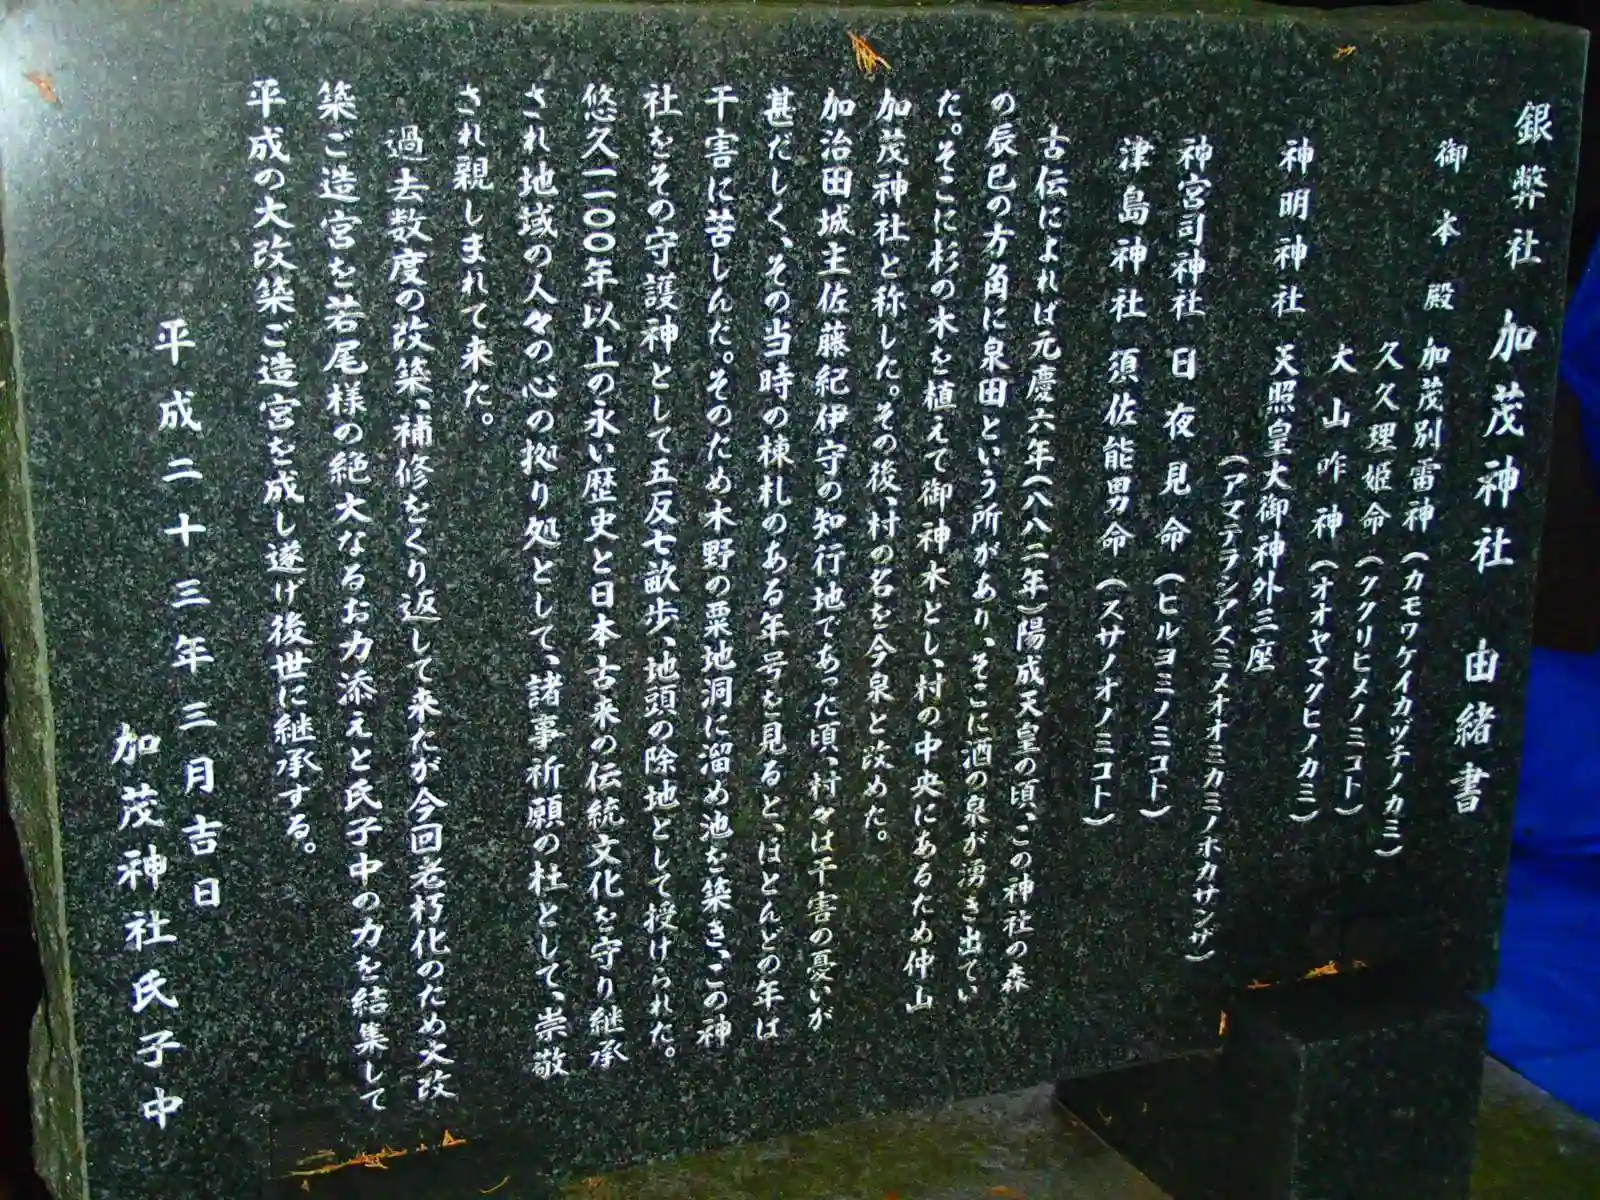 銀幣社 加茂神社 由緒書
御本殿 加茂別雷神(カモワケイカヅチノカミ)
久久理姫命(ククリヒメノミコト)
大山咋神(オオヤマクヒノカミ)
神明神社 天照皇大御神外三座
(アマテラシアスミメオオミカミノホカサンザ)
神宮司神社 日夜見命(ヒルヨミノミコト)
津島神社 須佐能男命(スサノオノミコト)
古伝によれば元慶六年(八八二年)陽成天皇の頃、この神社の森
の辰巳の方角に泉田という所があり、そこに酒の泉が湧き出てい
た。そこに杉の木を植えて御神木とし、村の中央にあるため仲山
加茂神社と称した。その後、村の名を今泉と改めた。
加治田城主佐藤紀伊守の知行地であった頃、村々は干害の憂いが
甚だしく、その当時の棟札のある年号を見ると、ほとんどの年は
干害に苦しんだ。そのため木野の粟地洞に溜め池を築き、この神
社をその守護神として五反七畝歩、地頭の除地として授けられた。
悠久一一〇〇年以上の永い歴史と日本古来の伝統文化を守り継承
され地域の人々の心の拠り処として、諸事祈願の杜として、崇敬
され親しまれて来た。
過去数度の改築、補修をくり返して来たが今回老朽化のため大改
築ご造宮を若尾様の絶大なるお力添えと氏子中の力を結集して
平成の大改築ご造宮を成し遂げ後世に継承する。
平成二十三年三月吉日
加茂神社氏子中